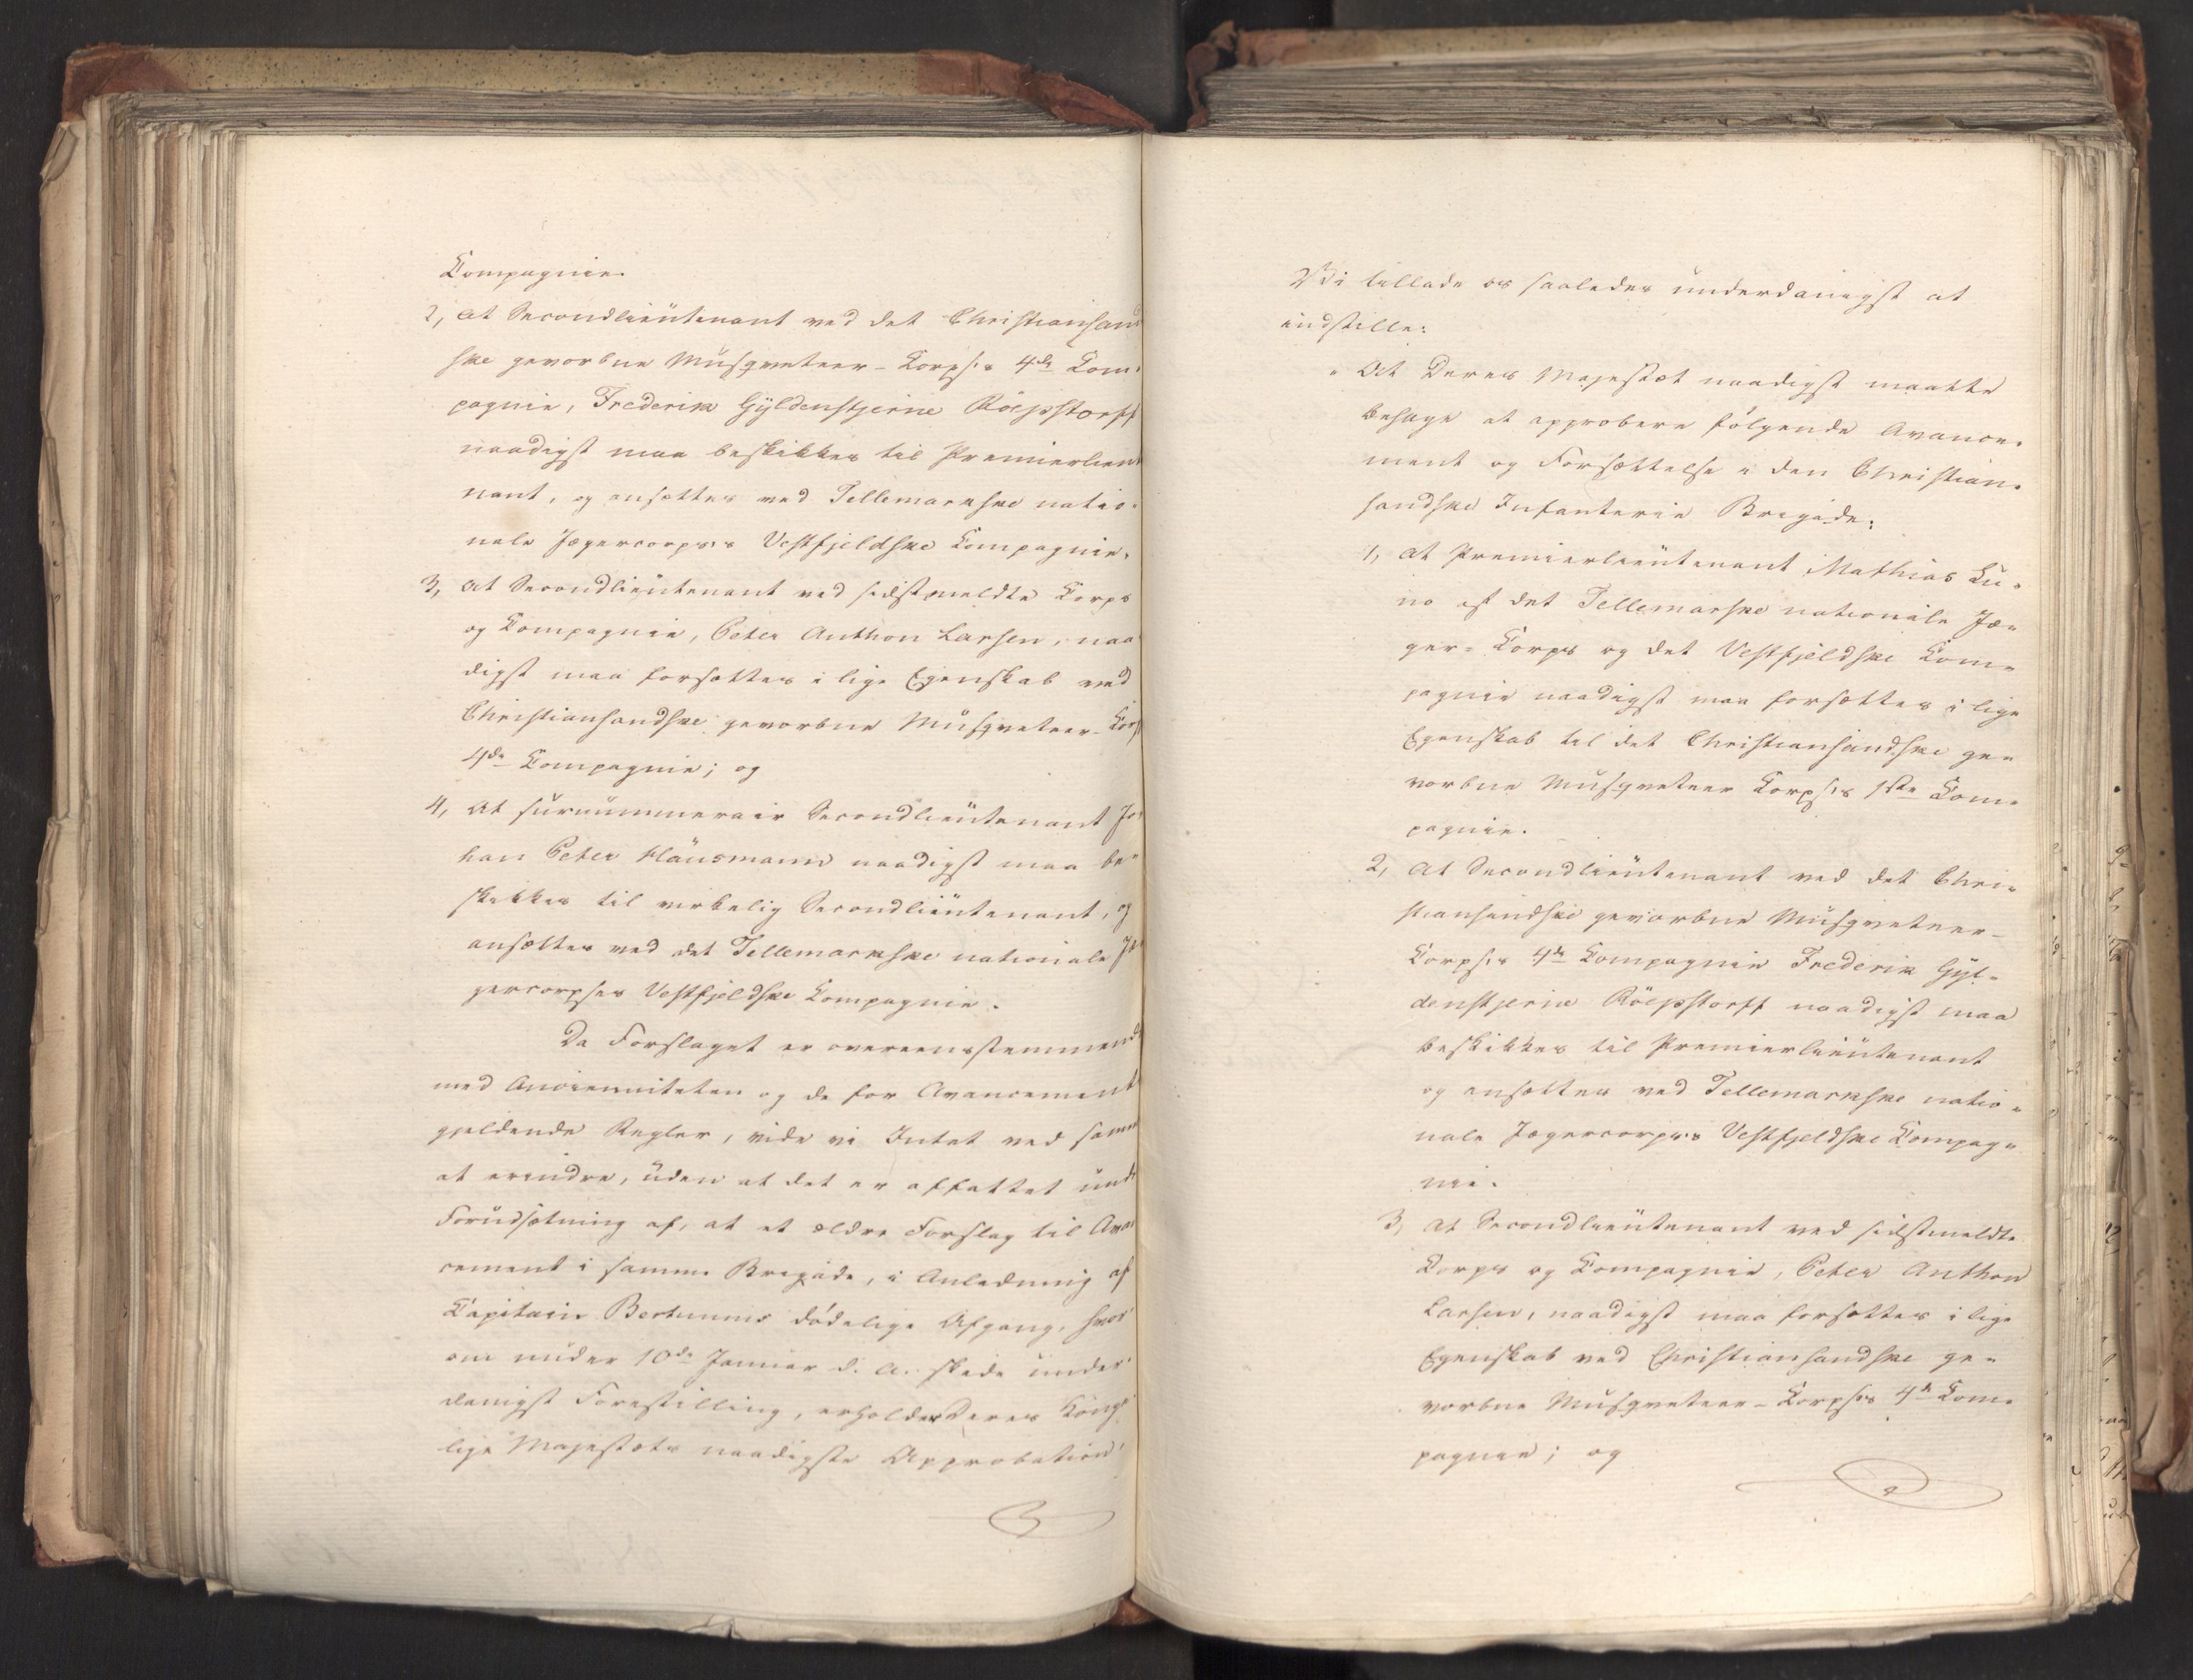 Compagnie.
2, at Secondlieutenant ved det Christiansand
ske gevorbne Musqveteer-Corps's 4de Com-
pagnie, Frederik Gyldenstjerne Röepstorff
naadigst maa beskikkes til Premierlieut
nant, og ansættes ved Tellemarkske natio-
nale Jægercorps's Vestfjeldske Compagnie.
3, at Secondlieutenant ved sidstmeldte Corps
og Compagnie, Peter Anthon Larsen, naa
digst maa forsættes i lige Egenskab ved
Christiansandske gevorbne Musqveteer-Corps
4de Compagnie; og
4, at surnummerair Secondlieutenant Jo
han Peter Hausmann naadigst maa be-
skikkes til virkelig Secondlieutenant, og
ansættes ved det Tellemarkske nationale Jæ
gercorpses Vestfjeldske Compagnie.
Da Forslaget er overeensstemmende
med Ancienniteten og de for Avancement
gjeldende Regler, vide vi Intet ved samme
at erindre, uden at det er affattet unde
Forudsætning af, at et ældre Forslag til Avan
cement i samme Brigade, i Anledning af
Capitain Bertunms dødelige Afgang, hvor
om under 10de Januar d. A. skede under
danigst Forestilling, erholder Deres Konge
lige Majestæts naadigste Approbation
Vi tillade os saaledes underdanigst at
indstille:
" At Deres Majestæt naadigst maatte
behage at approbere følgende Avance-
ment og Forsættelse i den Christian-
sandske Infanterie Brigade:
1, at Premierlieutenant Mathias Lu-
no af det Tellemarkske nationale Jæ-
ger-Corps og det Vestfjeldske Com-
pagnie naadigst maa forsættes i lige
Egenskab til det Christiansandske ge-
vorbne Musqveteer Corps's 1ste Com-
pagnie.
2, At Secondlieutenant ved det Chri-
stiansandske gevorbne Musqveteer-
Corps's 4de Compagnie Frederik Gyl-
denstjerne Röepstorff naadigst maa
beskikkes til Premierlieutenant
og ansættes ved Tellemarkske natio-
nale Jægercorps's Vestfjeldske Compag-
nie.
3, at Secondlieutenant ved sidstmeldte
Corps og Compagnie, Peter Anthon
Larsen, naadigst maa forsættes i lige
Egenskab ved Christiansandske ge-
vorbne Musqveteer-Corps's 4de Com-
pagnie; og